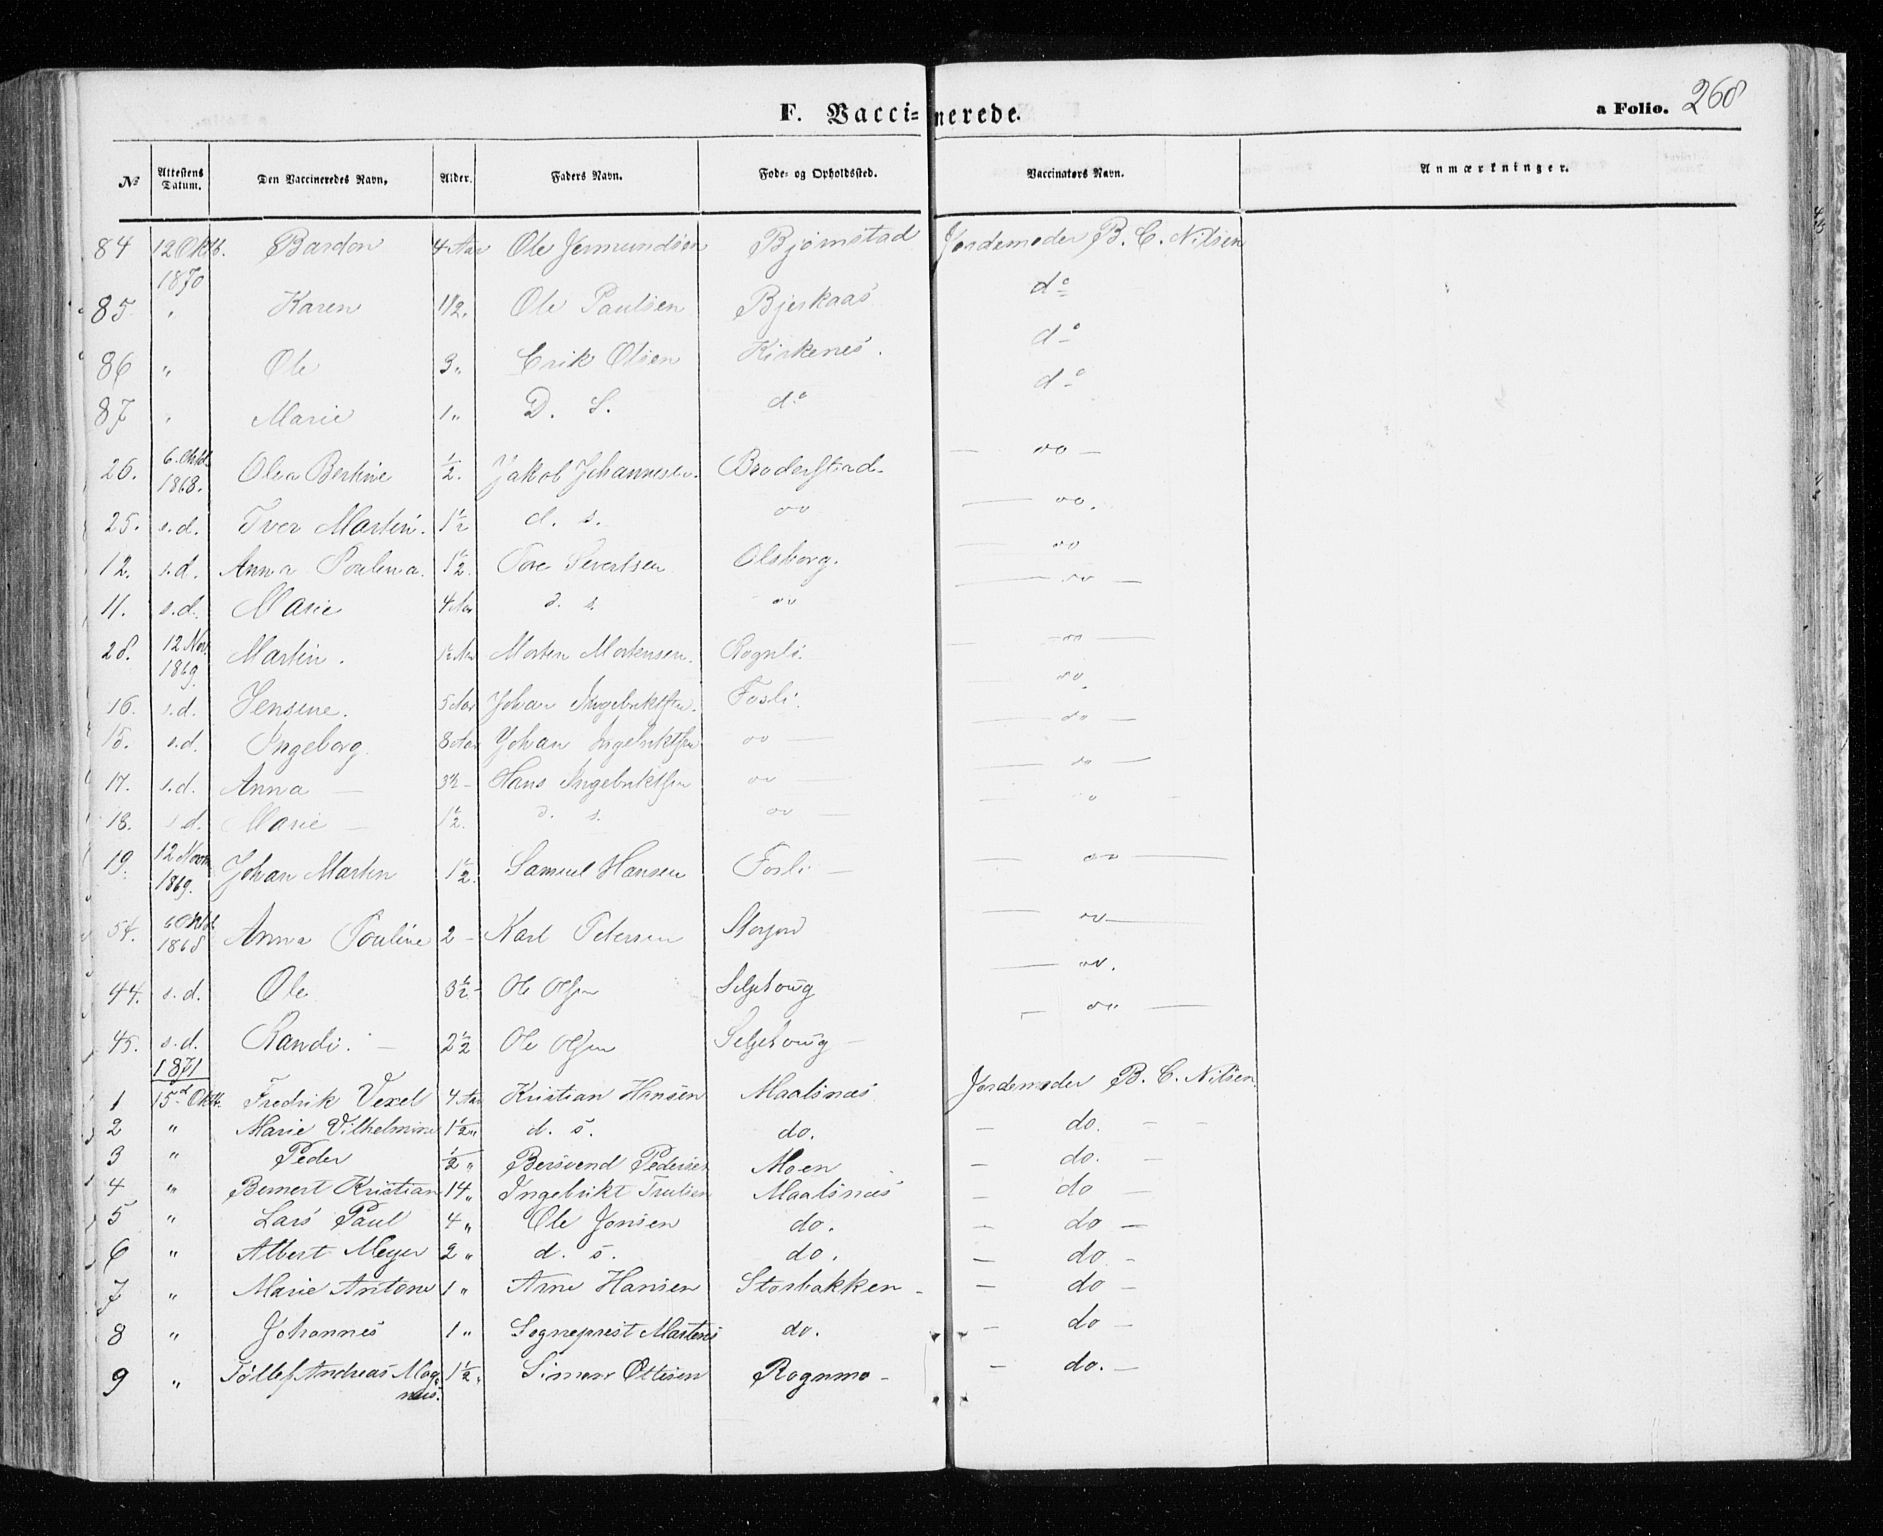 F. Vaccinerede.
a Folio. 268
№ Attestens Datum. Den Vaccineredes Navn, Alder. Faders Navn. Føde- og Opholdssted. Vaccinatørs Navn. Anmærkninger.
84 12 Oktb. 1870 Bardon 4 Aar Ole Jermundsøn Bjørnstad Jordemoder B. C. Nilsen
85 " Karen 1 1/2 " Ole Paulsen Bjerkaas do
86 " Ole 3 " Erik Olsen Kirkenes. do
87 " Marie 1 " D. S. do do
26. 6. Oktb. 1868. Olea Berkine 1/2. Jakob Johannesen. Broderstad. — do —
25. s.d. Iver Martin. 1 1/2 d. s. do — do.
12. s.d. Anna Poulina. 1 1/2. Tore Sivertsen Olsborg. — do
11. s.d. Marie 4 Aar d. s. do — do —
28. 12 Nov. 1869. Martin. 1 1/2 Aar Morten Mortensen. Rognli. — do —
16. s.d. Jensine. 5 Aar Johan Ingebriktsen. Fosli. — do.
15. s.d. Ingeborg. 8 Aar Johan Ingebriktsen do — — do —
17. s.d. Anna — 3 1/2 — Hans Ingebriktsen do — — do —
18. s.d. Marie — 1 1/2. d. s. do — — " —
19. 12 Novm 1869. Johan Martin 1 1/2. Samuel Hansen Fosli — — do —
54. 6 Oktb. 1868 Anna Pouline 2 — Karl Petersen Storjord — do —
44. s.d. Ole 3 1/2 — Ole Olsen Seljehoug — do.
45. s.d. Randi. — 2 1/2 Ole Olsen Seljehoug — — do —
1871
1 15d Oktb. Fredrik Vexel 4 Aar Kristian Hansen Maalsnæs Jordemoder B. C. Nilsen
2 " Marie Vilhelmine 1 1/2 " d. s. do. — do. — —
3 " Peder 1/2 " Bersvend Pedersen Moen — do. —
4 " Bernert Kristian 14 " Ingebrikt Trulsen Maalsnæs — do —
5 " Lars Paul 4 " Ole Jonsen do. — do —
6 " Albert Meyer 2 " d. s. do. — do —
7 " Marie Antone 1 " Arne Hansen Storbakken — — do —
8 " Johannes 1 " Sogneprest Martens do. — do —
9 " Tøllef Andreas Magnus. 1 1/2 " Simon Ottesen Rognmo — — do. —